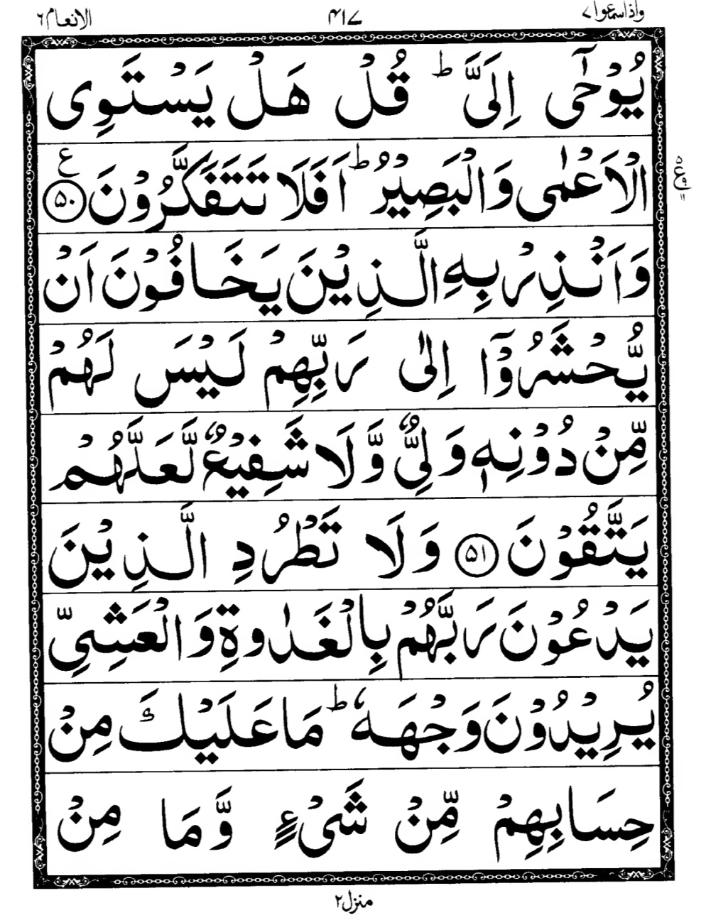 واذاسمعوا۷ ۴۱۷ الانعام۶
يُوْحٰۤى اِلَىَّ ؕ قُلْ هَلْ يَسْتَوِى
الْاَعْمٰى وَالْبَصِيْرُ ؕ اَفَلَا تَتَفَكَّرُوْنَ ﴿۵۰﴾ ع
۵ ع ۹ ۱۱
وَاَنْذِرْ بِهِ الَّذِيْنَ يَخَافُوْنَ اَنْ
يُّحْشَرُوْۤا اِلٰى رَبِّهِمْ لَيْسَ لَهُمْ
مِّنْ دُوْنِهٖ وَلِىٌّ وَّلَا شَفِيْعٌ لَّعَلَّهُمْ
يَتَّقُوْنَ ﴿۵۱﴾ وَلَا تَطْرُدِ الَّذِيْنَ
يَدْعُوْنَ رَبَّهُمْ بِالْغَدٰوةِ وَالْعَشِىِّ
يُرِيْدُوْنَ وَجْهَهٗ ؕ مَا عَلَيْكَ مِنْ
حِسَابِهِمْ مِّنْ شَىْءٍ وَّمَا مِنْ
منزل۲